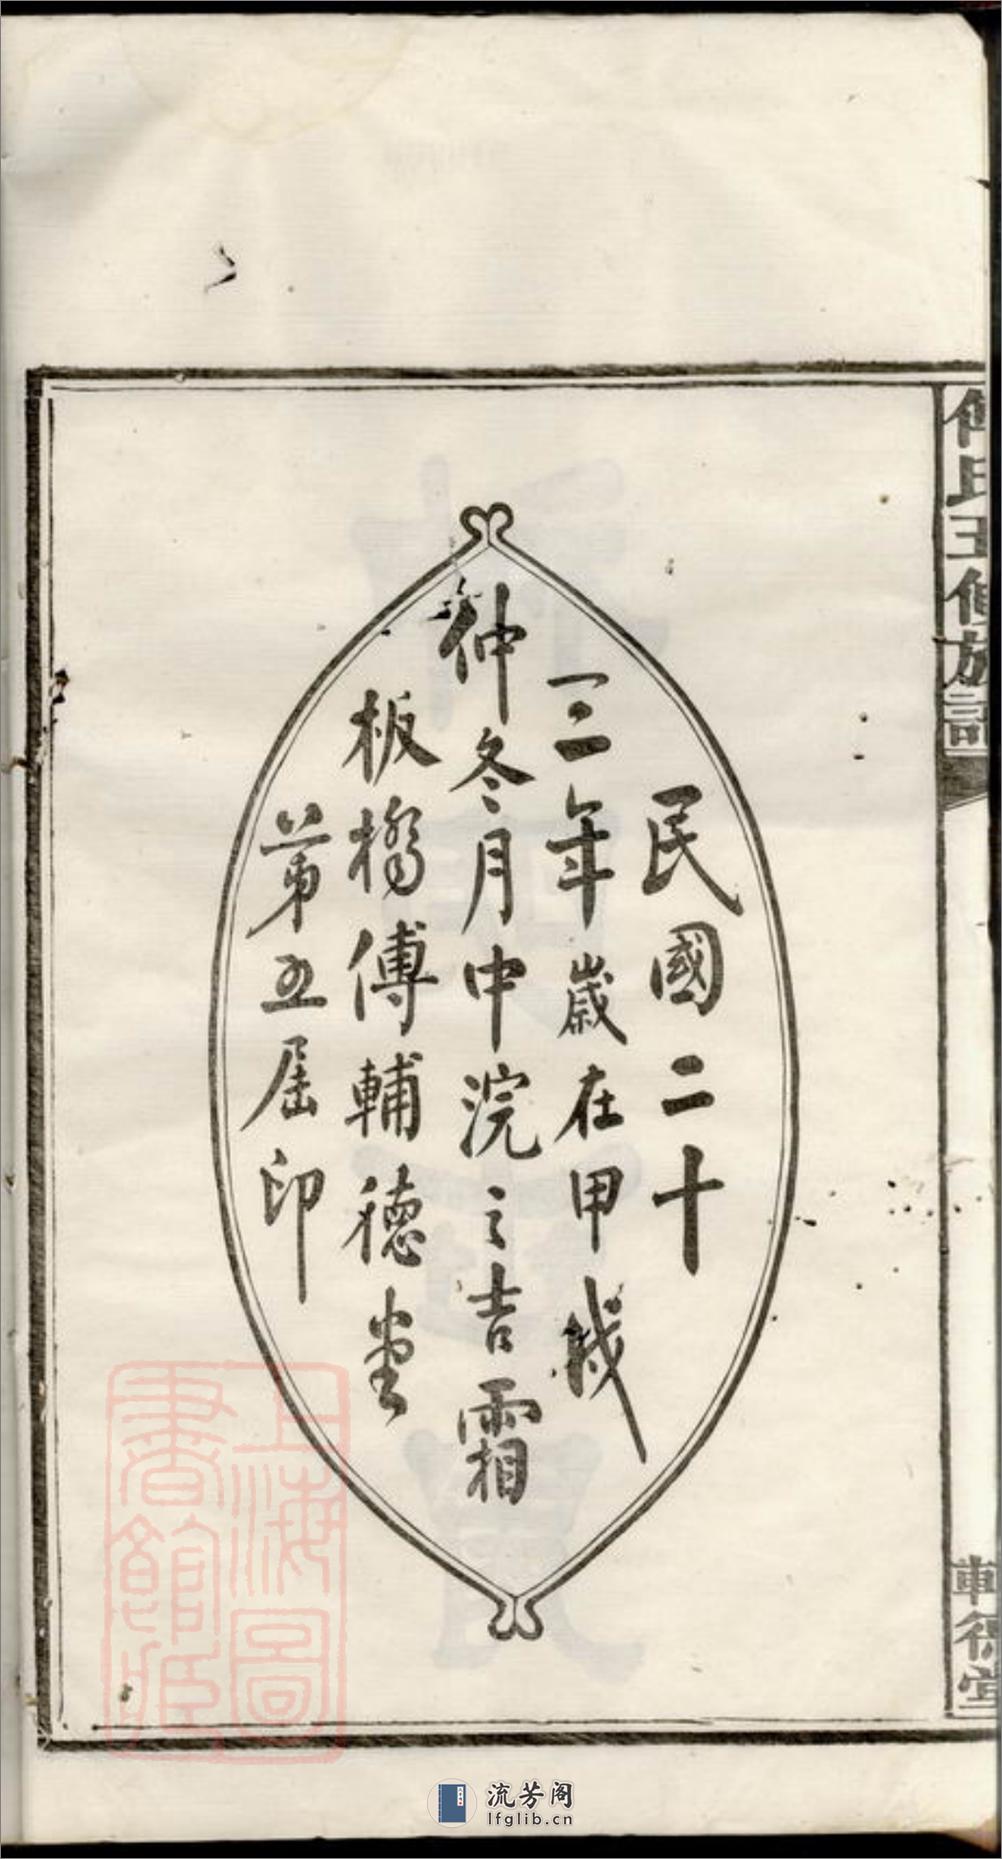 傅氏五修族譜
輔德堂
民國二十
三年歲在甲戌
仲冬月中浣之吉霜
板橋傅輔德堂
第五屆印
上海圖
書館藏
流芳阁
lfglib.cn